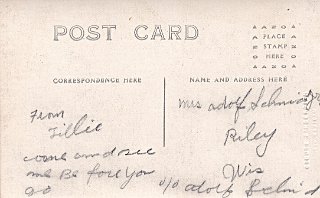 POST CARD
AZO
PLACE
STAMP
HERE
AZO
CORRESPONDENCE HERE
NAME AND ADDRESS HERE
From
Tillie
come and see
me Be fore you
go
Mrs adolf Schmidt
Riley
Wis
c/o adolf Schmid